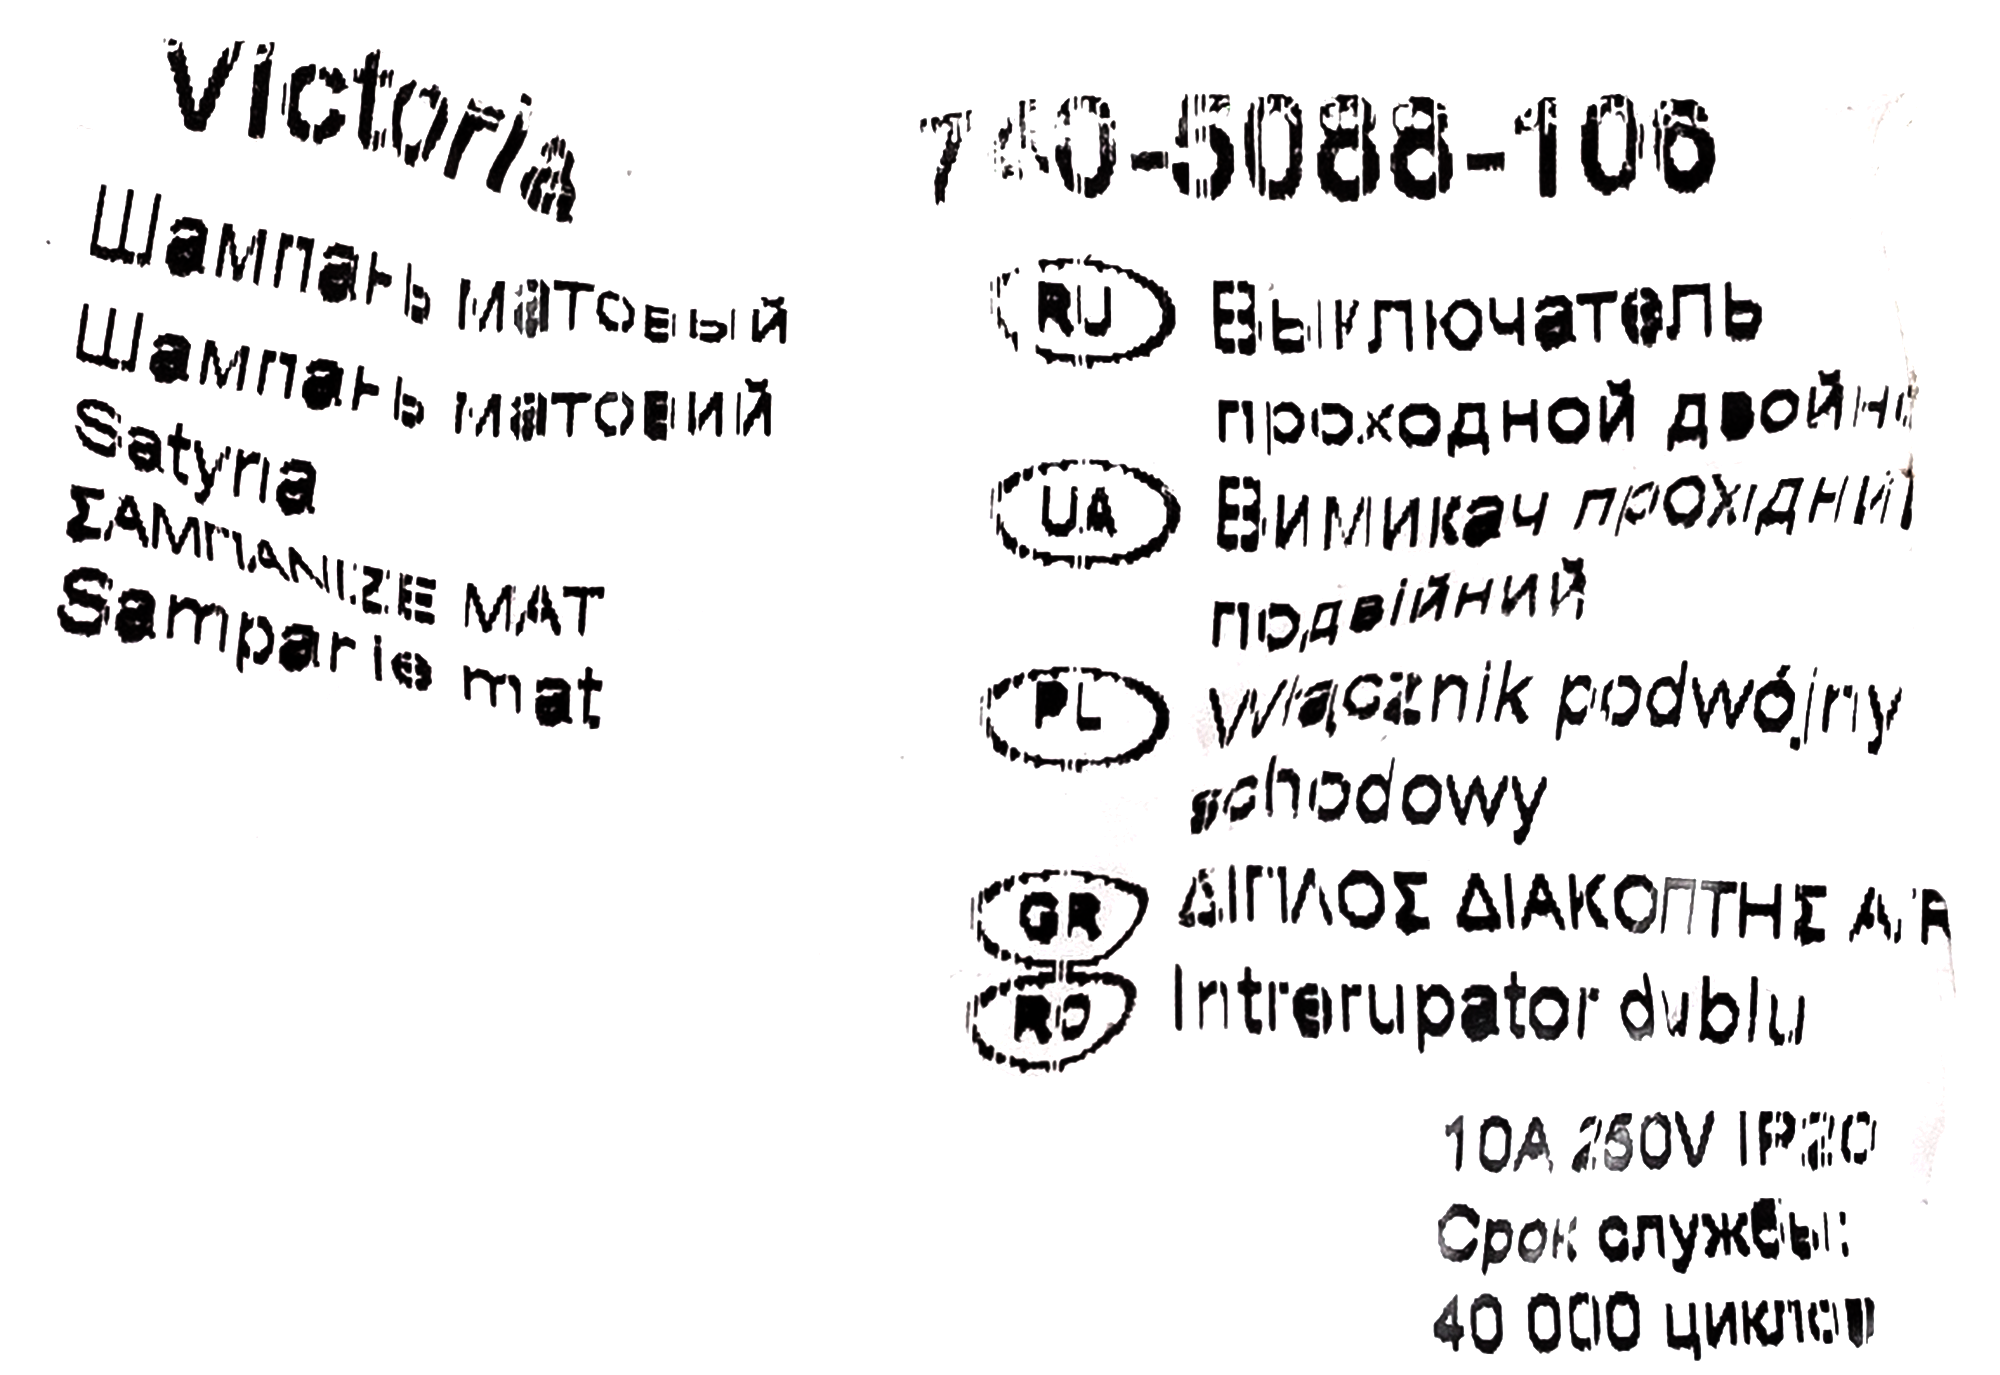 Victoria
Шампань матовый
Шампань матовий
Satyna
ΣΑΜΠΑΝΙΖΕ ΜΑΤ
Sampanie mat
740-5088-106
RU Выключатель
проходной двойн
UA Вимикач прохідний
подвійний
PL Włącznik podwójny
schodowy
GR ΔΙΠΛΟΣ ΔΙΑΚΟΠΤΗΣ A/R
RO Intrerupator dublu
10A 250V IP20
Срок службы:
40 000 циклов